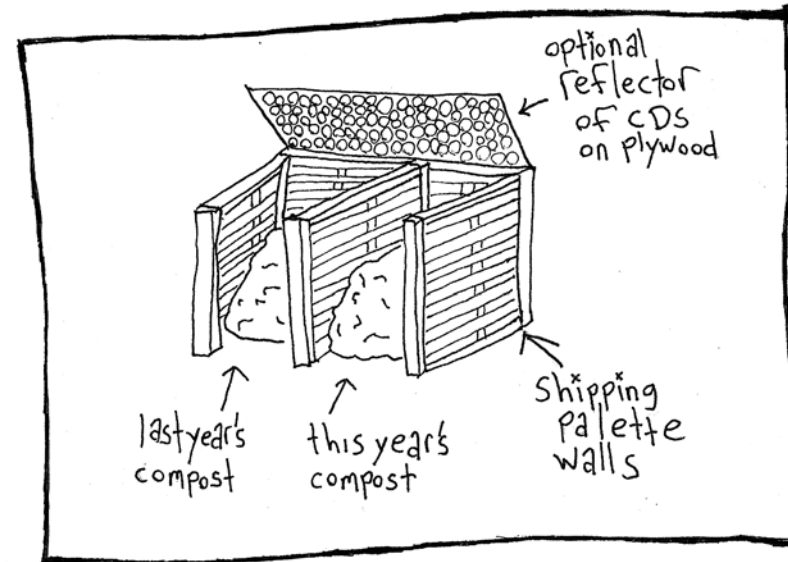 optional
reflector
of CDS
on plywood
last year's
compost
this year's
compost
Shipping
palette
walls